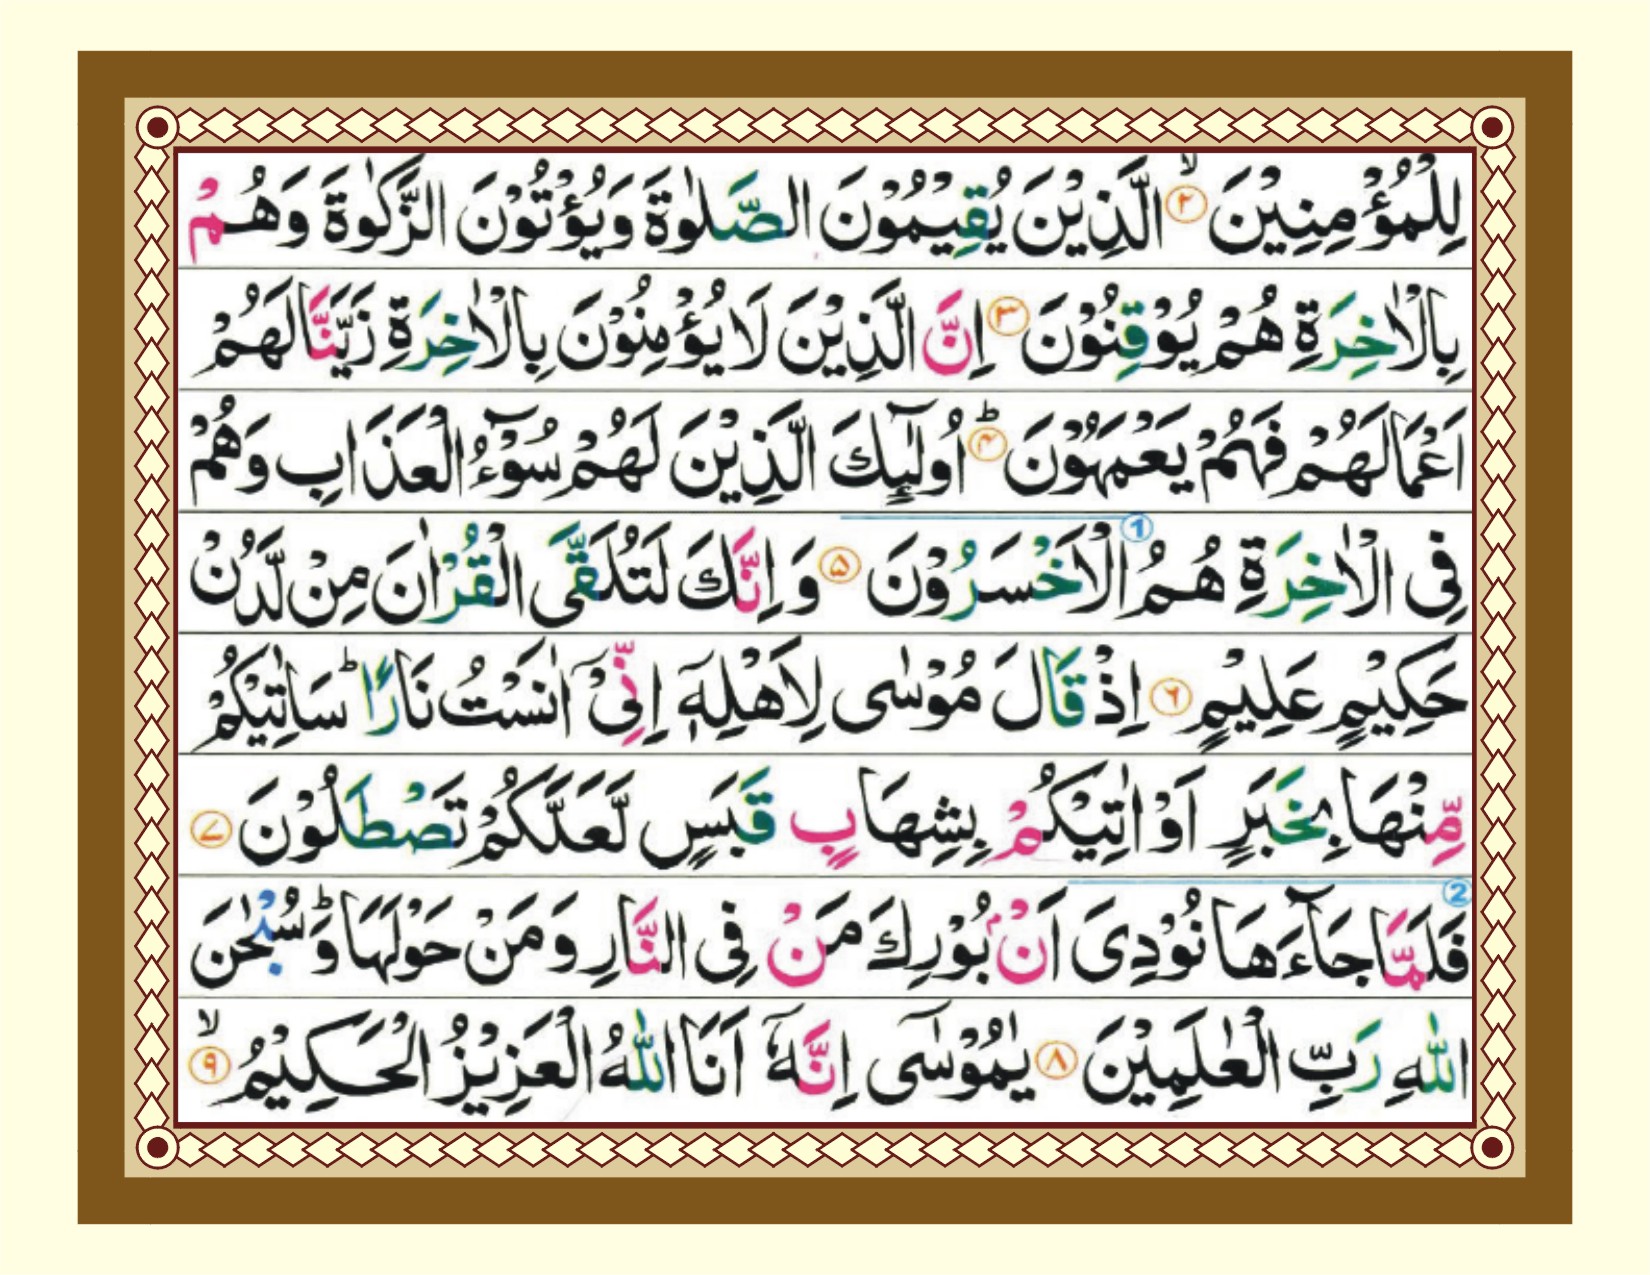 لِلْمُؤْمِنِيْنَ ۙ﴿۲﴾ الَّذِيْنَ يُقِيْمُوْنَ الصَّلٰوةَ وَيُؤْتُوْنَ الزَّكٰوةَ وَهُمْ
بِالْاٰخِرَةِ هُمْ يُوْقِنُوْنَ ﴿۳﴾ اِنَّ الَّذِيْنَ لَا يُؤْمِنُوْنَ بِالْاٰخِرَةِ زَيَّنَّا لَهُمْ
اَعْمَالَهُمْ فَهُمْ يَعْمَهُوْنَ ؕ﴿۴﴾ اُولٰٓئِكَ الَّذِيْنَ لَهُمْ سُوْٓءُ الْعَذَابِ وَهُمْ
فِى الْاٰخِرَةِ هُمُ 1 الْاَخْسَرُوْنَ ﴿۵﴾ وَ اِنَّكَ لَتُلَقَّى الْقُرْاٰنَ مِنْ لَّدُنْ
حَكِيْمٍ عَلِيْمٍ ﴿۶﴾ اِذْ قَالَ مُوْسٰى لِاَهْلِهٖۤ اِنِّىْۤ اٰنَسْتُ نَارًا ؕ سَاٰتِيْكُمْ
مِّنْهَا بِخَبَرٍ اَوْ اٰتِيْكُمْ بِشِهَابٍ قَبَسٍ لَّعَلَّكُمْ تَصْطَلُوْنَ ﴿۷﴾
2 فَلَمَّا جَآءَهَا نُوْدِىَ اَنْۢ بُوْرِكَ مَنْ فِى النَّارِ وَمَنْ حَوْلَهَا ؕ وَسُبْحٰنَ
اللّٰهِ رَبِّ الْعٰلَمِيْنَ ﴿۸﴾ يٰمُوْسٰٓى اِنَّهٗۤ اَنَا اللّٰهُ الْعَزِيْزُ الْحَكِيْمُ ۙ﴿۹﴾